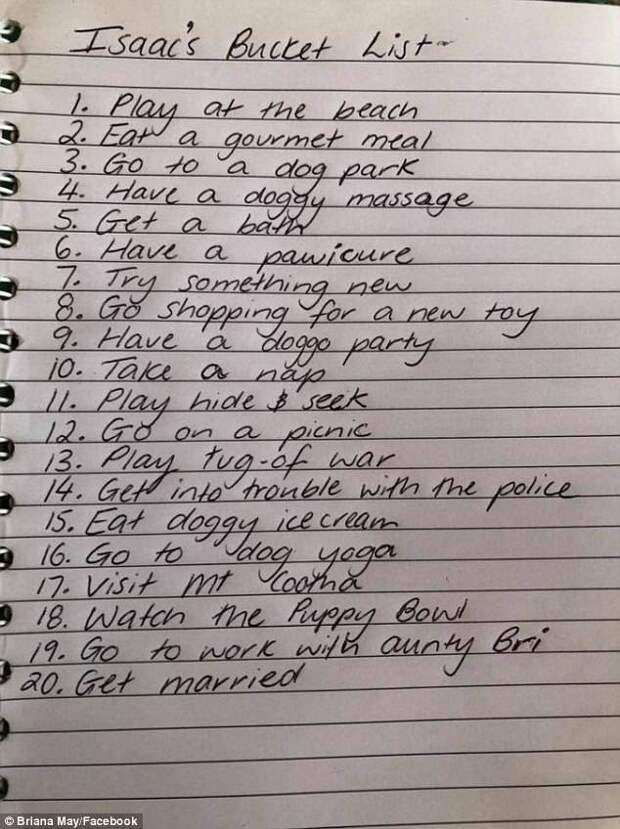 Isaac's Bucket List~
1. Play at the beach
2. Eat a gourmet meal
3. Go to a dog park
4. Have a doggy massage
5. Get a bath
6. Have a pawicure
7. Try something new
8. Go shopping for a new toy
9. Have a doggo party
10. Take a nap
11. Play hide & seek
12. Go on a picnic
13. Play tug-of war
14. Get into trouble with the police
15. Eat doggy icecream
16. Go to dog yoga
17. Visit Mt Cootha
18. Watch the Puppy Bowl
19. Go to work with aunty Bri
20. Get married
© Briana May/Facebook